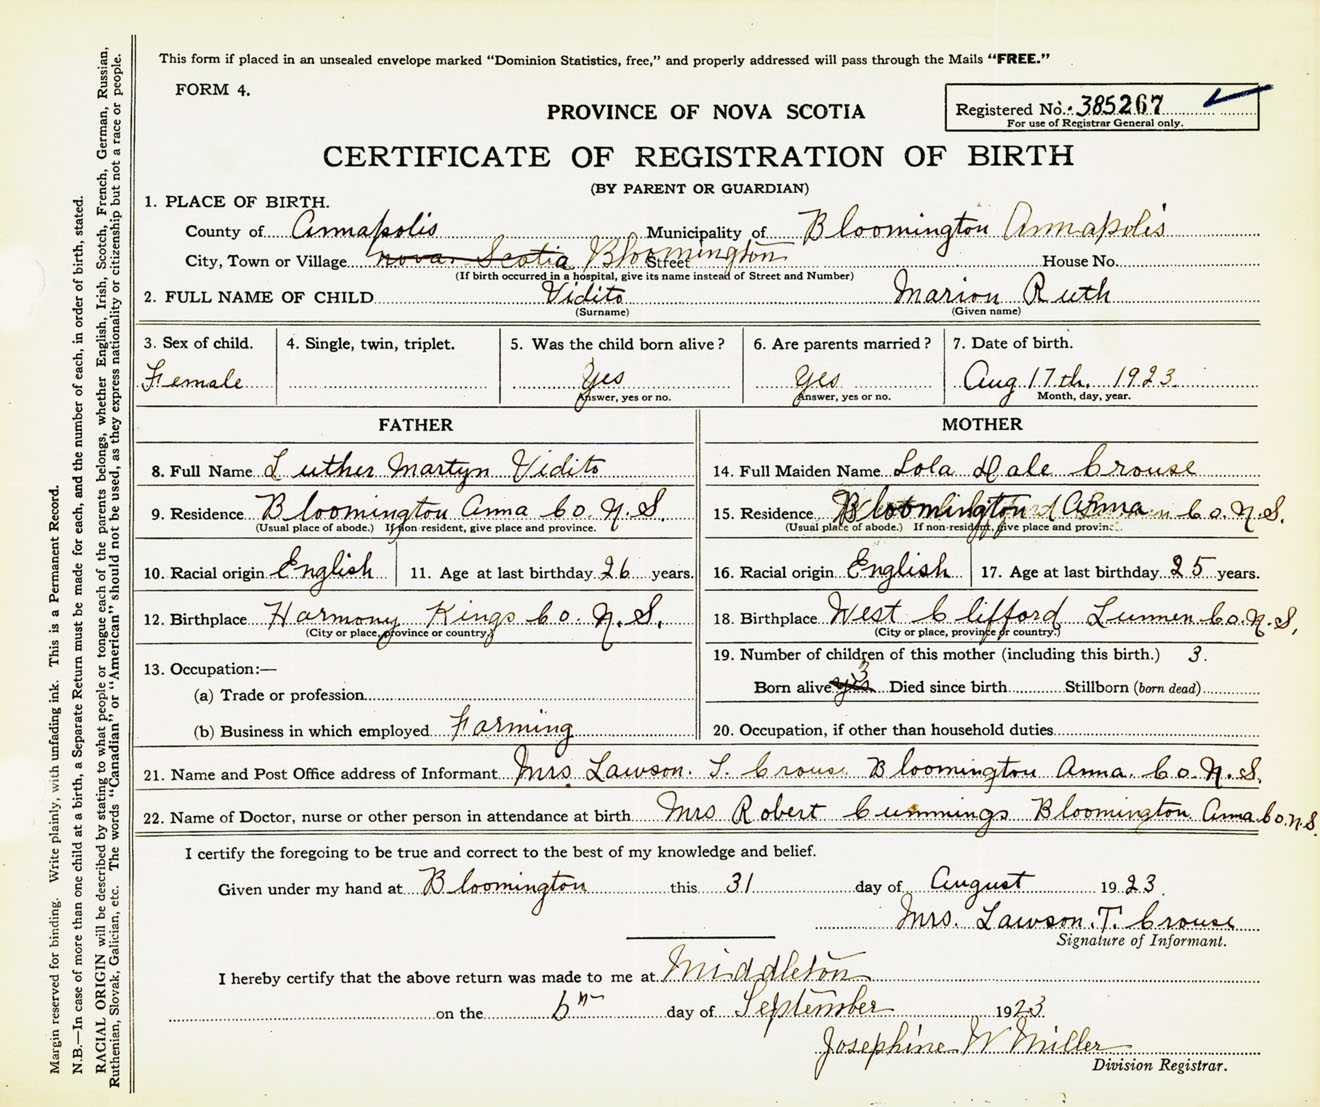 This form if placed in an unsealed envelope marked "Dominion Statistics, free," and properly addressed will pass through the Mails "FREE."
FORM 4.
PROVINCE OF NOVA SCOTIA
Registered No. 385267
For use of Registrar General only.
CERTIFICATE OF REGISTRATION OF BIRTH
(BY PARENT OR GUARDIAN)
1. PLACE OF BIRTH.
County of Annapolis Municipality of Bloomington Annapolis
City, Town or Village Nova Scotia Bloomington Street House No.
(If birth occurred in a hospital, give its name instead of Street and Number)
2. FULL NAME OF CHILD Vidito Marion Ruth
(Surname) (Given name)
3. Sex of child. 4. Single, twin, triplet. 5. Was the child born alive? 6. Are parents married? 7. Date of birth.
Female Yes Yes Aug 17th. 1923
Answer, yes or no. Answer, yes or no. Month, day, year.
FATHER MOTHER
8. Full Name Luther Martyn Vidito 14. Full Maiden Name Lola Dale Crouse
9. Residence Bloomington Anna Co. N.S. 15. Residence Bloomington Anna Co. N.S.
(Usual place of abode.) If non-resident, give place and province. (Usual place of abode.) If non-resident, give place and province.
10. Racial origin English 11. Age at last birthday 26 years. 16. Racial origin English 17. Age at last birthday 25 years.
12. Birthplace Harmony Kings Co. N.S. 18. Birthplace West Clifford Lunnen Co. N.S.
(City or place, province or country.) (City or place, province or country.)
13. Occupation:— 19. Number of children of this mother (including this birth.) 3.
(a) Trade or profession Born alive yes 3 Died since birth Stillborn (born dead)
(b) Business in which employed Farming 20. Occupation, if other than household duties
21. Name and Post Office address of Informant Mrs Lawson. T. Crouse Bloomington Anna. Co. N.S.
22. Name of Doctor, nurse or other person in attendance at birth Mrs Robert Cummings Bloomington Anna Co. N.S.
I certify the foregoing to be true and correct to the best of my knowledge and belief.
Given under my hand at Bloomington this 31 day of August 1923.
Mrs. Lawson. T. Crouse
Signature of Informant.
I hereby certify that the above return was made to me at Middleton
on the 6th day of September 1923
Josephine W Miller
Division Registrar.
Margin reserved for binding. Write plainly, with unfading ink. This is a Permanent Record.
N.B.—In case of more than one child at a birth, a Separate Return must be made for each, and the number of each, in order of birth, stated.
RACIAL ORIGIN will be described by stating to what people or tongue each of the parents belongs, whether English, Irish, Scotch, French, German, Russian,
Ruthenian, Slovak, Galician, etc. The words "Canadian" or "American" should not be used, as they express nationality or citizenship but not a race or people.